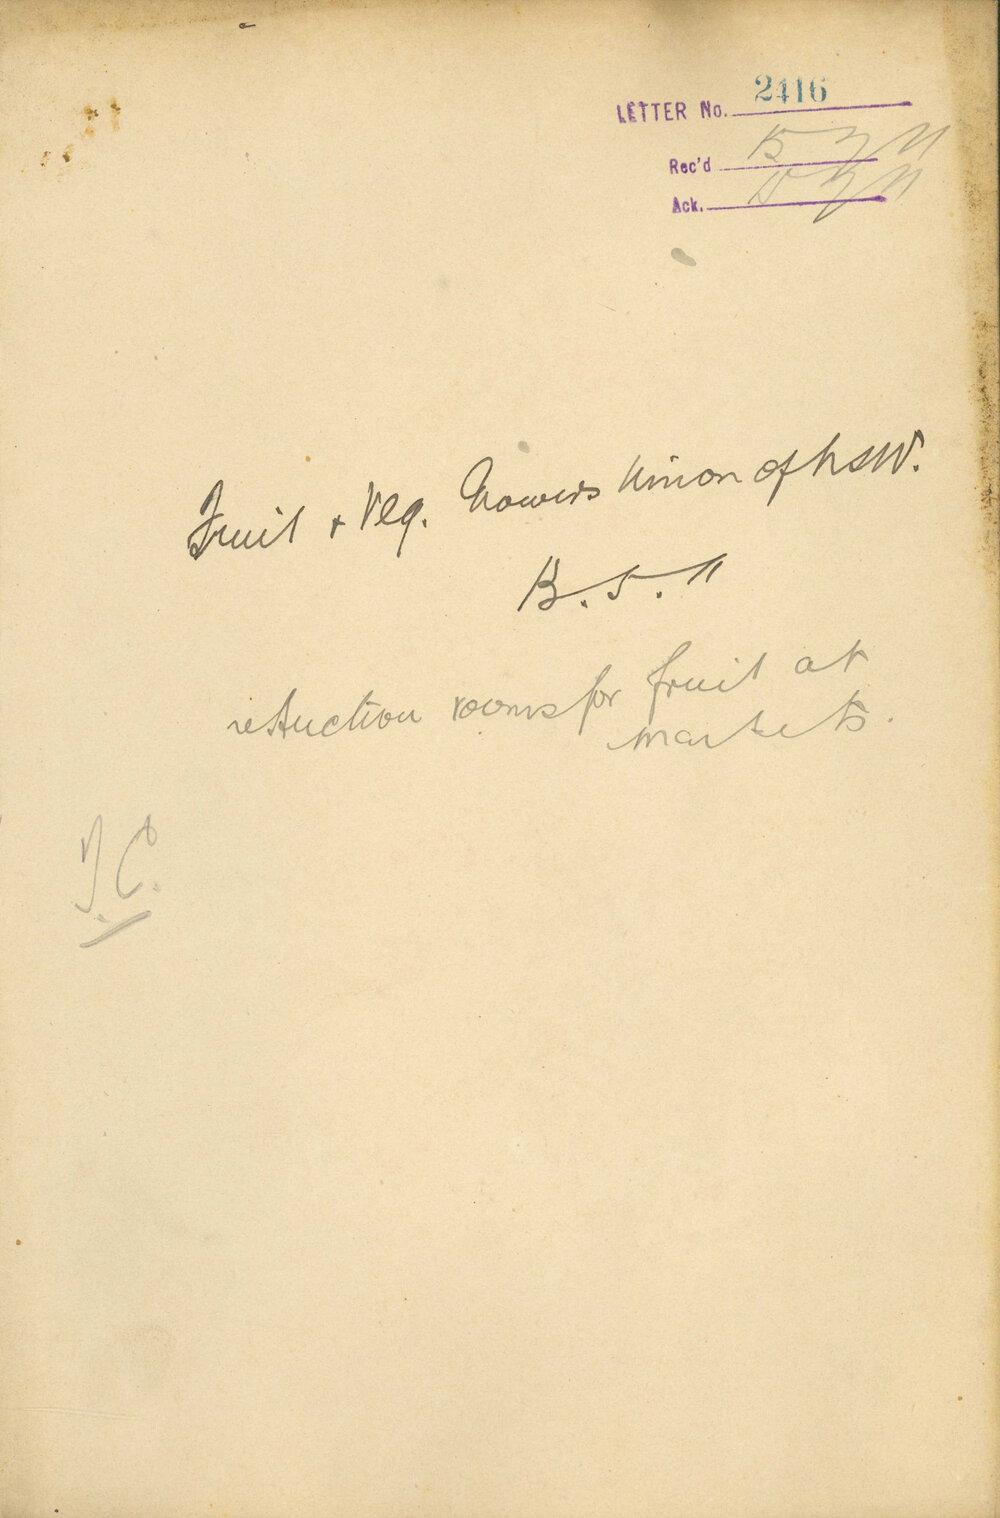 LETTER No. 2416
Rec'd 15 5 11
Ack. 15 5 11
Fruit & Veg. Growers Union of NSW.
13.5.11
re suction rooms for fruit at
markets.